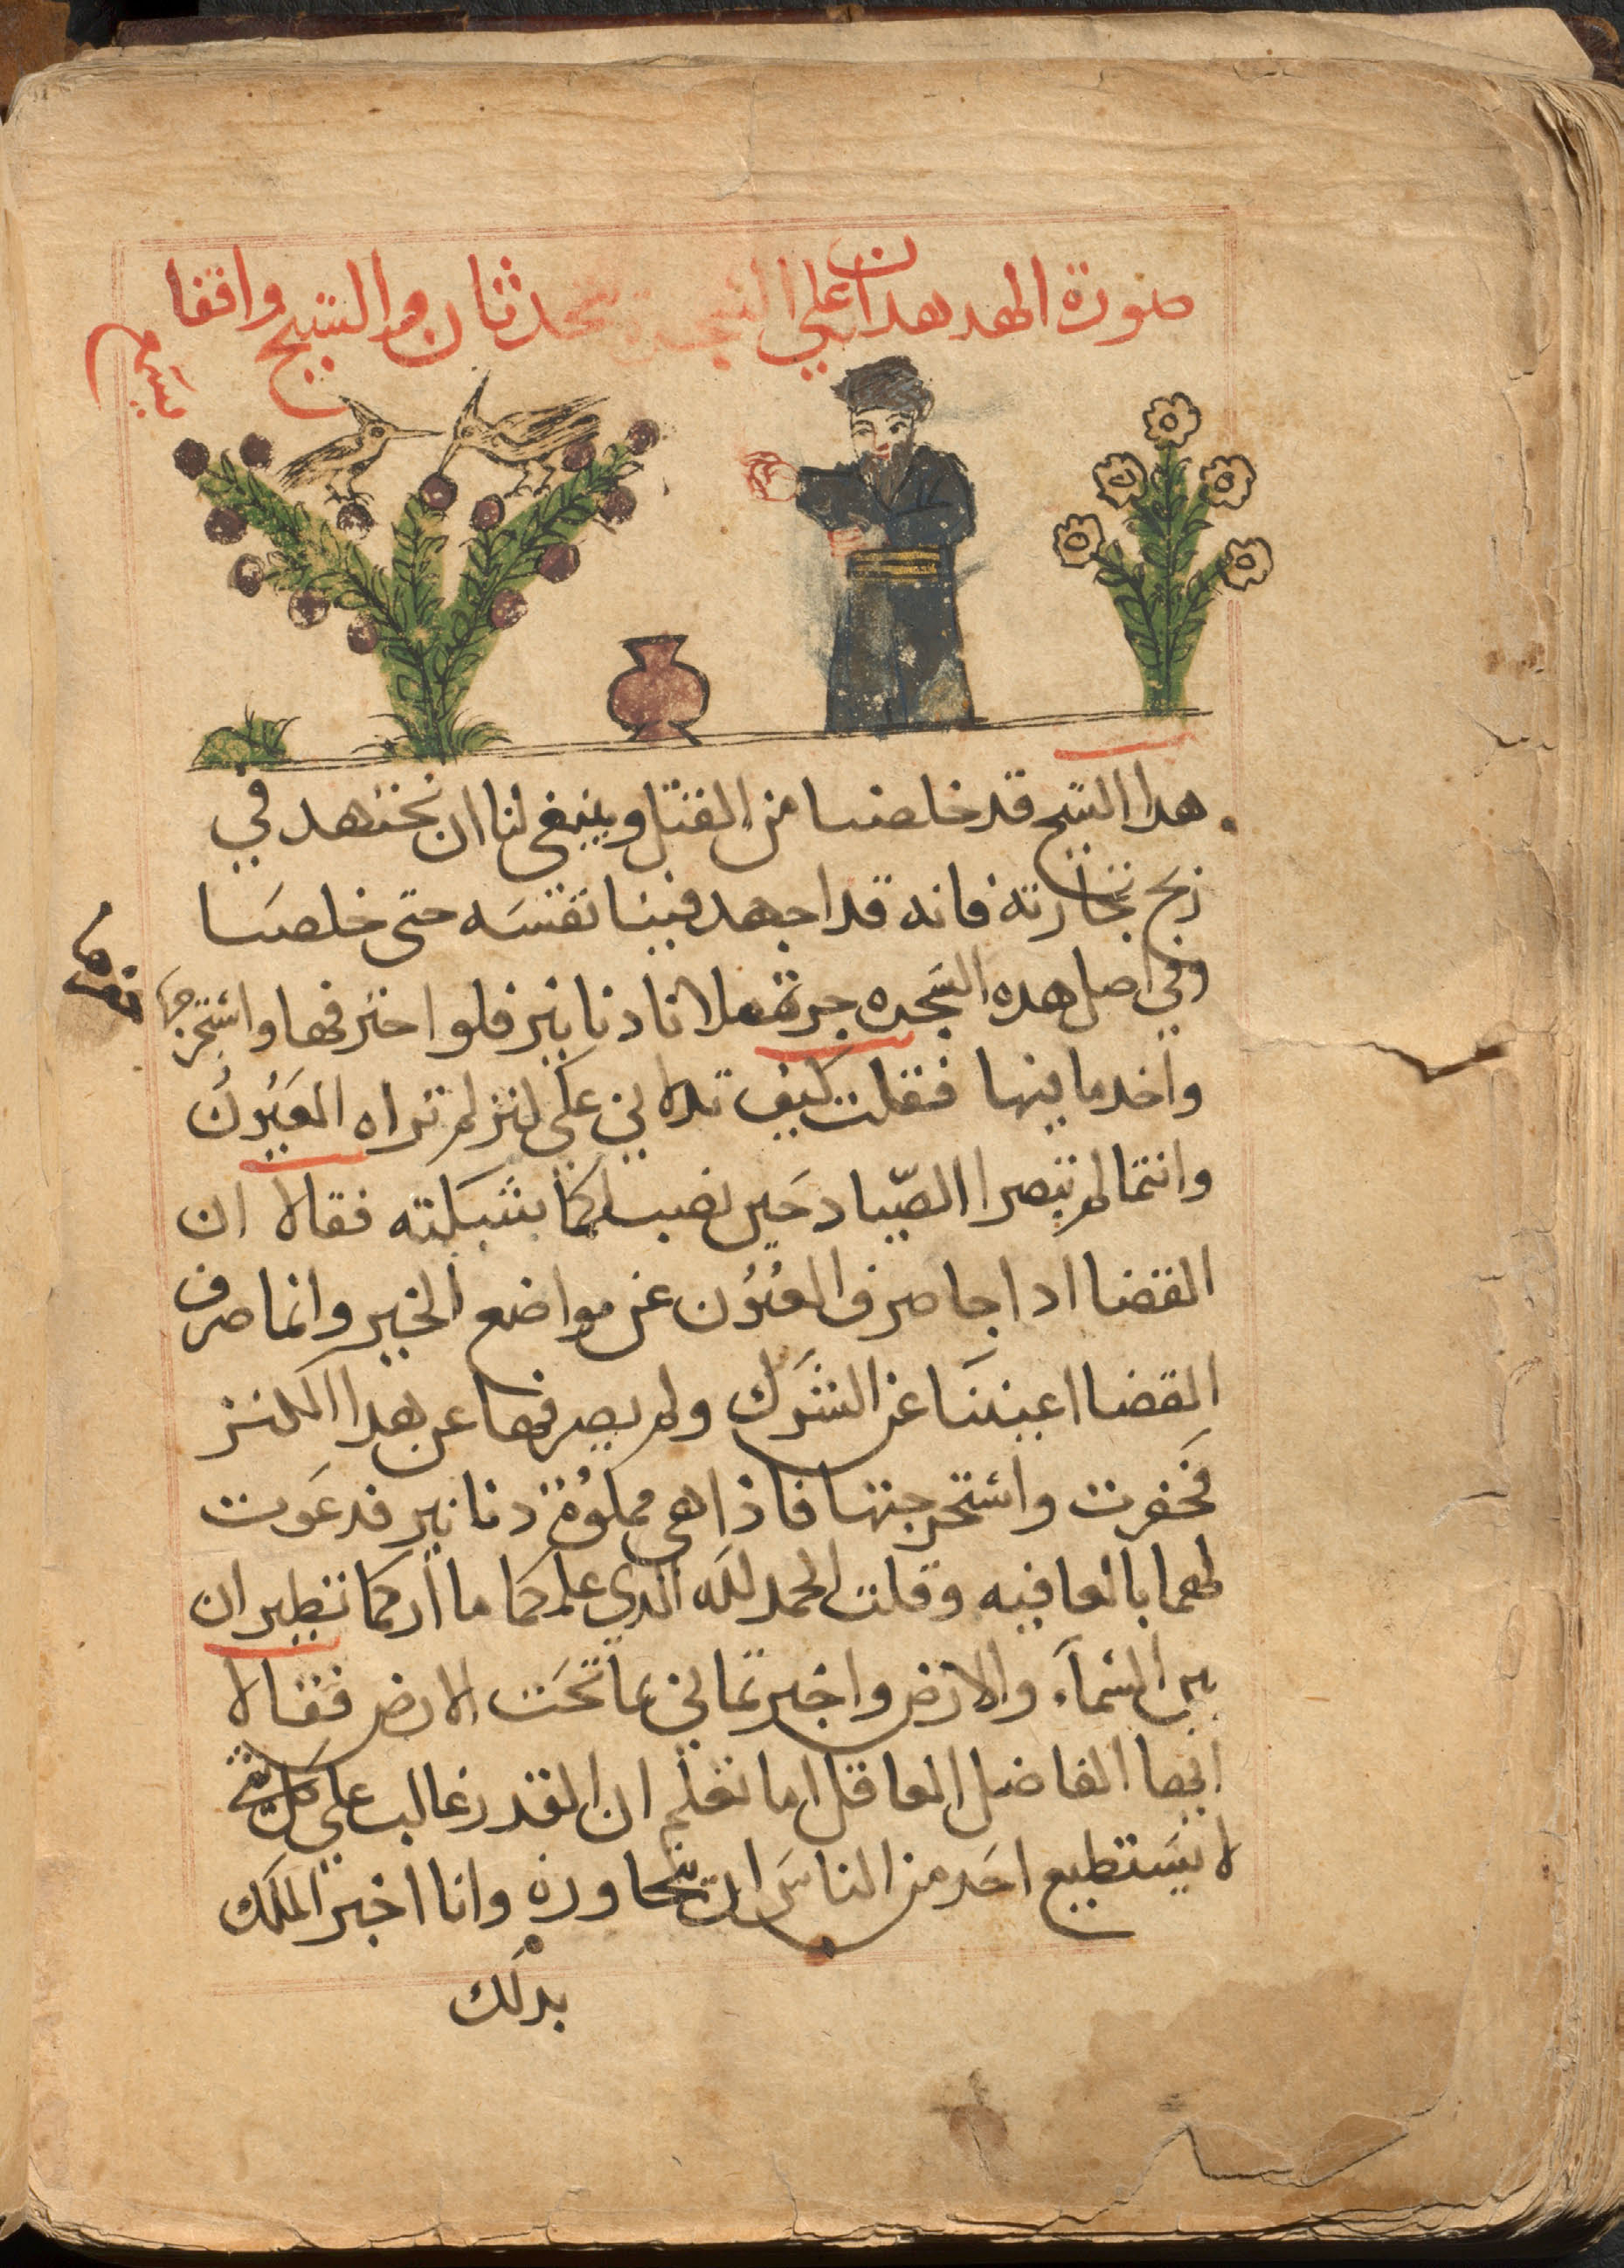 صورة الهدهدان على الشجرة يتحدثان والشيخ واقفا
هدا الشيخ قد خلصنا من القتل وينبغي لنا ان نجتهد في
ربح تجارته فانه قد اجهد فينا نفسه حتى خلصنا
وفي اصل هده الشجره جرة ملانا دنانير فلو احتفرفها واستخرجها
واخد ما فيها فقلت كيف تدلاني على كنز لم تراه العيون
وانتما لم تبصرا الصياد حين نصب لكما بشبكته فقالا ان
القضا ادا جا صرف العيون عن مواضع الخير وانما صرف
القضا اعيننا عن الشرك ولم يصرفها عن هدا الكنز
فحفرت واستخرجتها فاذا هي مملوة دنانير فدعوت
لهما بالعافيه وقلت الحمد لله الدي علمكما ما اركما تطيران
بين السماء والارض واخبرتماني بما تحت الارض فقالا
ايها الفاضل العاقل اما تعلم ان القدر غالب على كل شي
لا يستطيع احد من الناس ان يتجاوزه وانا اخبر الملك
بدلك